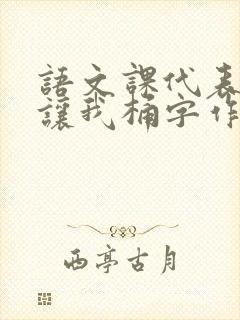 語文課代表
讓我桶字作
西亭古月